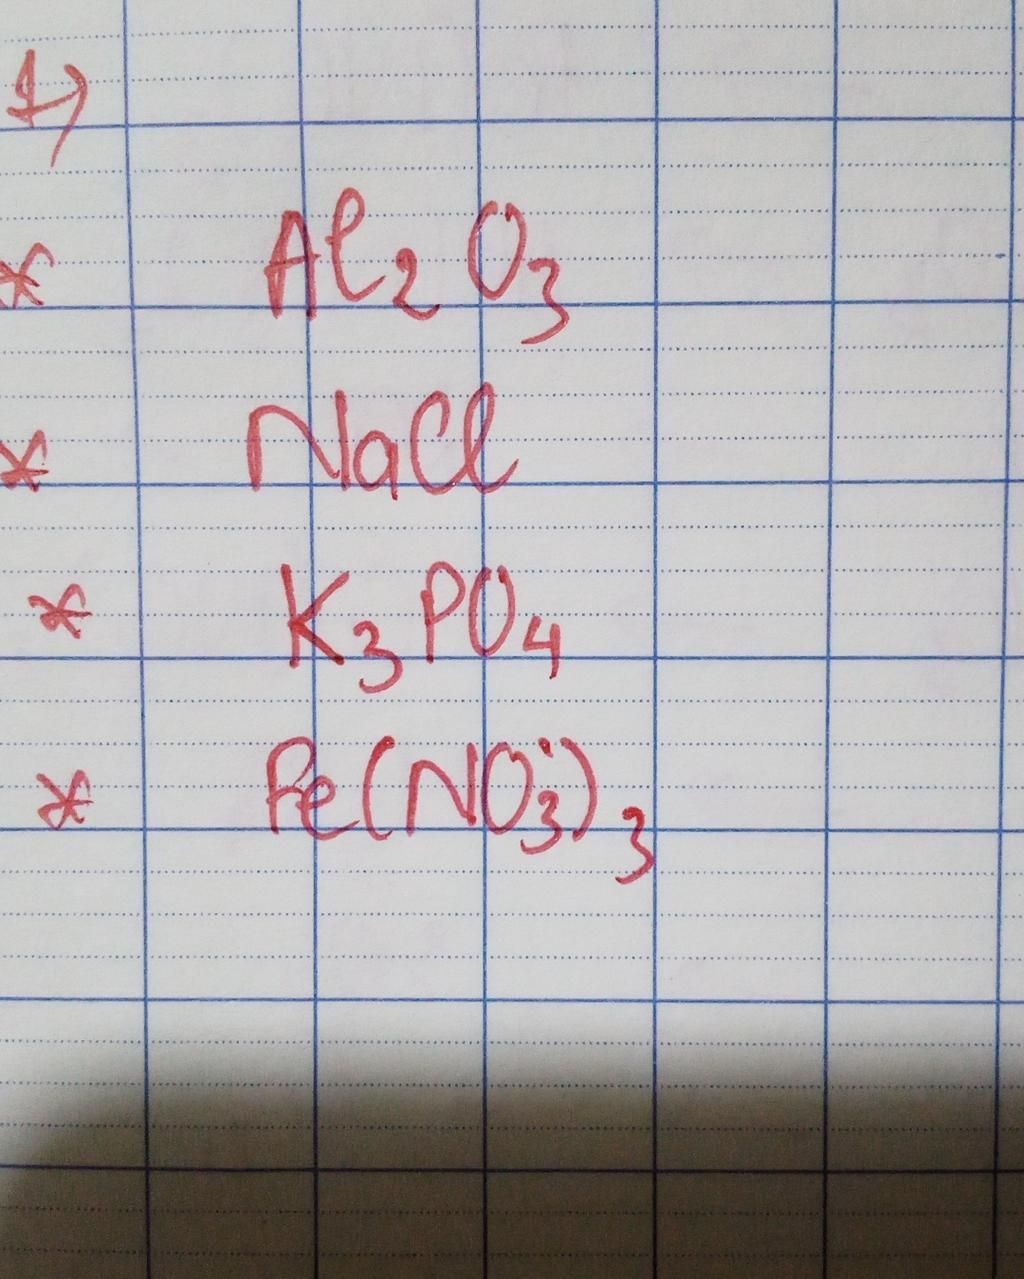 1)
* Al₂O₃
* NaCl
* K₃PO₄
* Fe(NO₃)₃